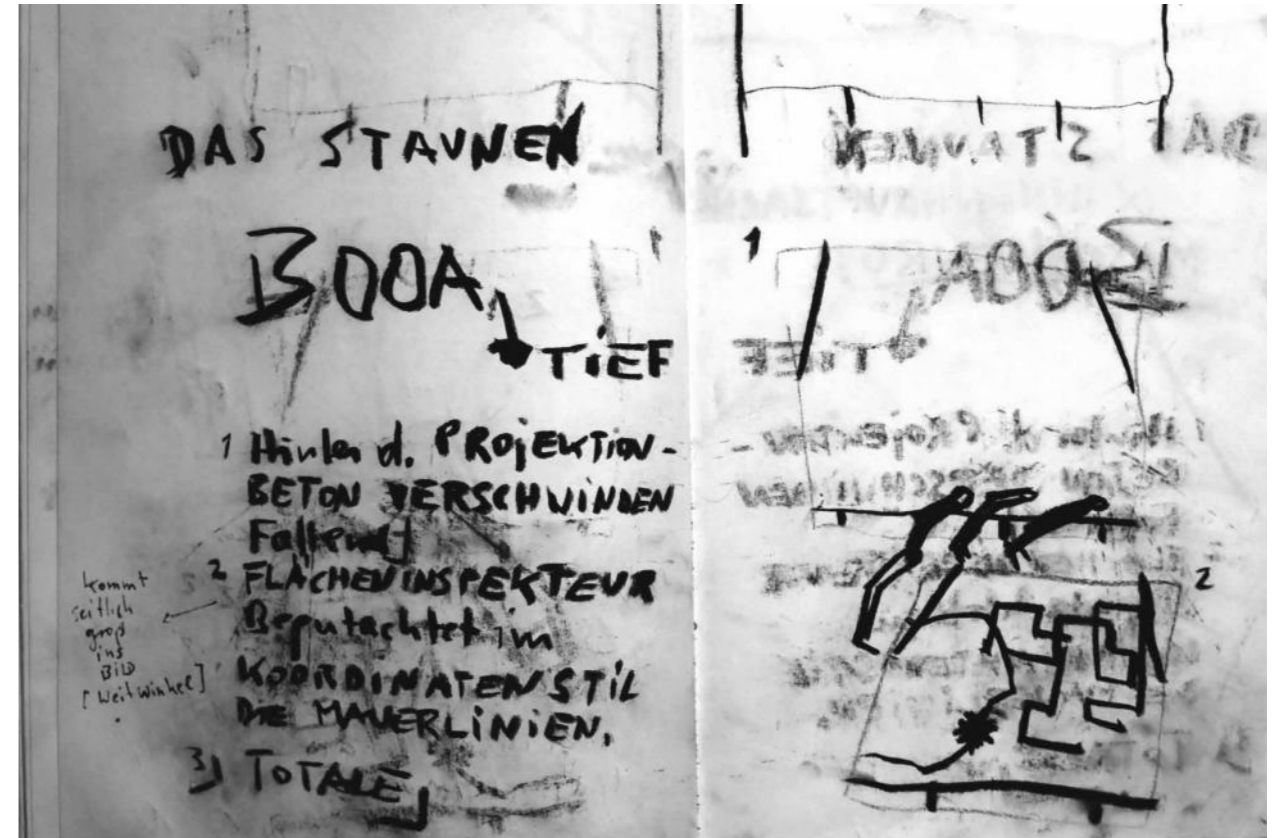 DAS STAUNEN
BOOA,
TiEF
1 Hinter d. PROjEKTION-
BETON VERSCHWINDEN
Fallend]
2 FLÄCHENINSPEKTEUR
Begutachtet im
KOORDINATENSTiL
DiE MAUERLiNiEN.
3) TOTALE]
kommt
seitlich
groß
ins
BiLD
[Weitwinkel]
1
2